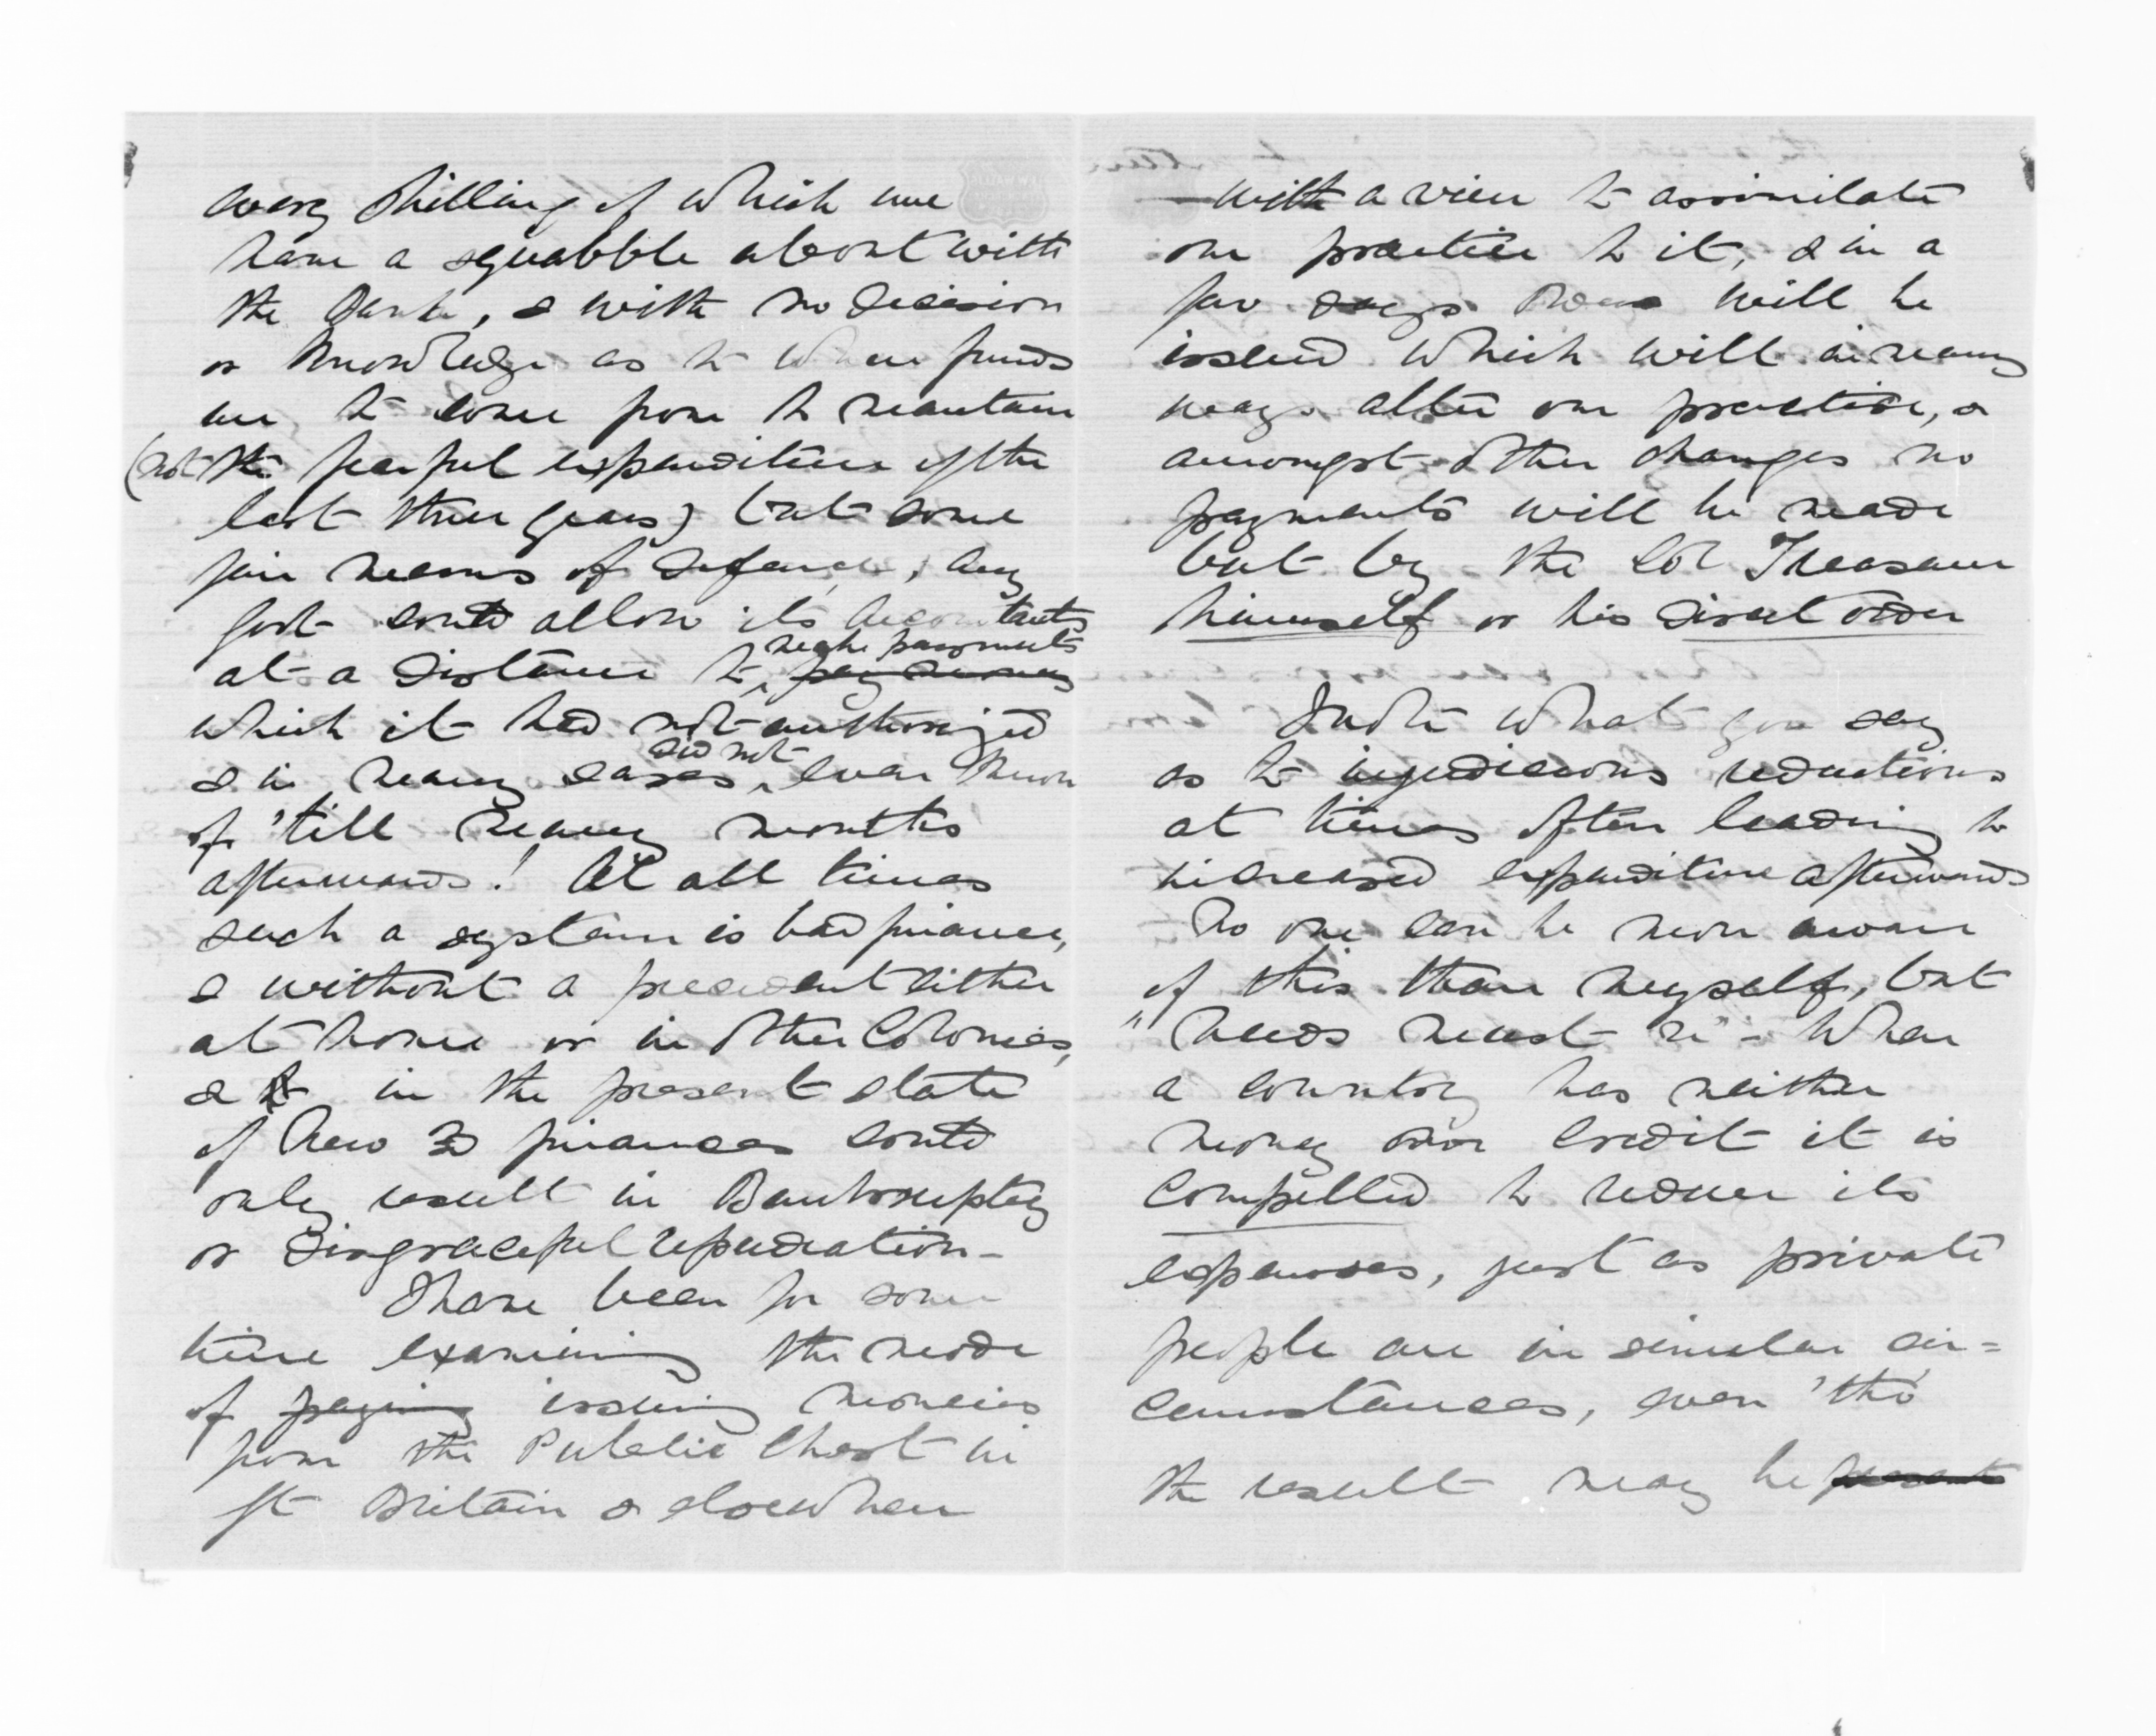 every shilling of which we
have a squabble about with
the Bank, & with no decision
or knowledge as to where funds
are to come from to maintain
(not the fearful expenditure of the
last three years) but some
fair means of defence, any
Govt could allow its accountants
at a distance to make payments pay money
which it had not authorized
& in many cases did not even know
of 'till many months
afterwards! At all times
such a system is bad finance,
& without a precedent either
at home or in other Colonies,
& in the present state
of New Zd finances could
only result in Bankruptcy
or disgraceful repudiation -
I have been for some
time examining the mode
of paying issuing monies
from the Public Chest in
Gt Britain & elsewhere
- with a view to assimilate
our practice to it, & in a
few days will be
issued which will in many
ways alter our practice, &
amongst other changes no
payments will be made
but by the Col Treasurer
himself or his direct order
I note what you say
as to injudicious reductions
at times often leading to
increased expenditure afterwards
No one can be more aware
of this than myself, but
"needs must" - When
a country has neither
money nor credit it is
compelled to reduce its
expenses, just as private
people are in similar cir=
cumstances, even 'tho'
the result may be